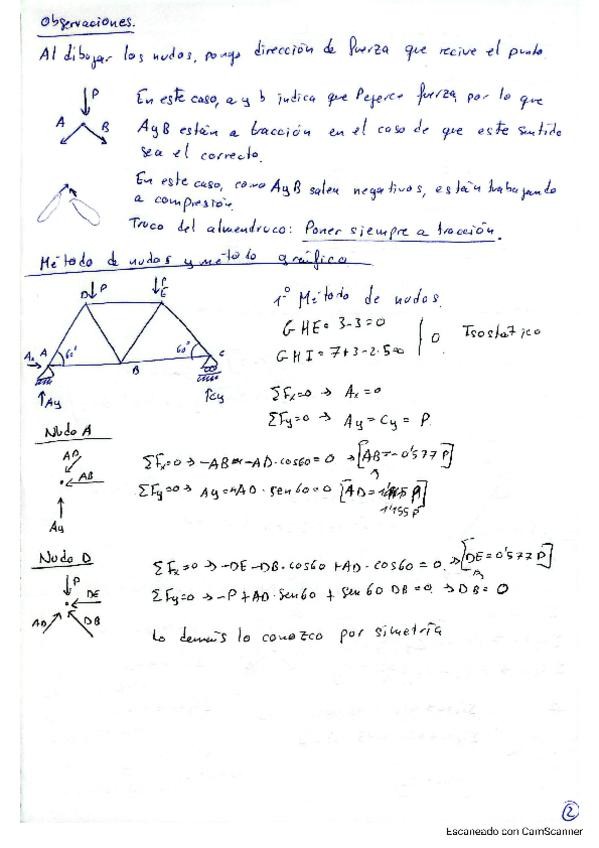 Observaciones.
Al dibujar los nudos, pongo dirección de fuerza que recive el punto.
P
A
B
En este caso, a y b indica que P ejerce fuerza, por lo que
A y B están a tracción en el caso de que este sentido
sea el correcto.
En este caso, como A y B salen negativos, están trabajando
a compresión.
Truco del almendruco: Poner siempre a tracción.
Método de nudos y método gráfico
D
P
P
E
Ax
A
60°
B
60°
C
Ay
Cy
1º Método de nudos.
GHE = 3-3=0
GHI = 7+3-2·5=0
0
Isostático
ΣFx=0 → Ax=0
ΣFy=0 → Ay = Cy = P.
Nudo A
AD
AB
Ay
ΣFx=0 → -AB -AD·cos60=0 → [AB=-0'577P]
ΣFy=0 → Ay-AD·sen60=0 [AD=
1'155P
Nudo D
P
DE
AD
DB
ΣFx=0 → -DE-DB·cos60 +AD·cos60=0 → [DE=0'577P]
ΣFy=0 → -P+AD·sen60 + sen60 DB=0 → DB=0
Lo demás lo conozco por simetría
2
Escaneado con CamScanner